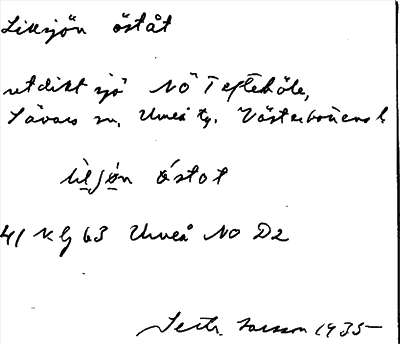 Liksjön öståt
utdikt sjö NÖ Teftebôle,
Sävars sn, Umeå tg. Västerbottens l.
lìl̲jö̲n ö́stot
41 Kg 63 Umeå NO D2
Larsson 1935